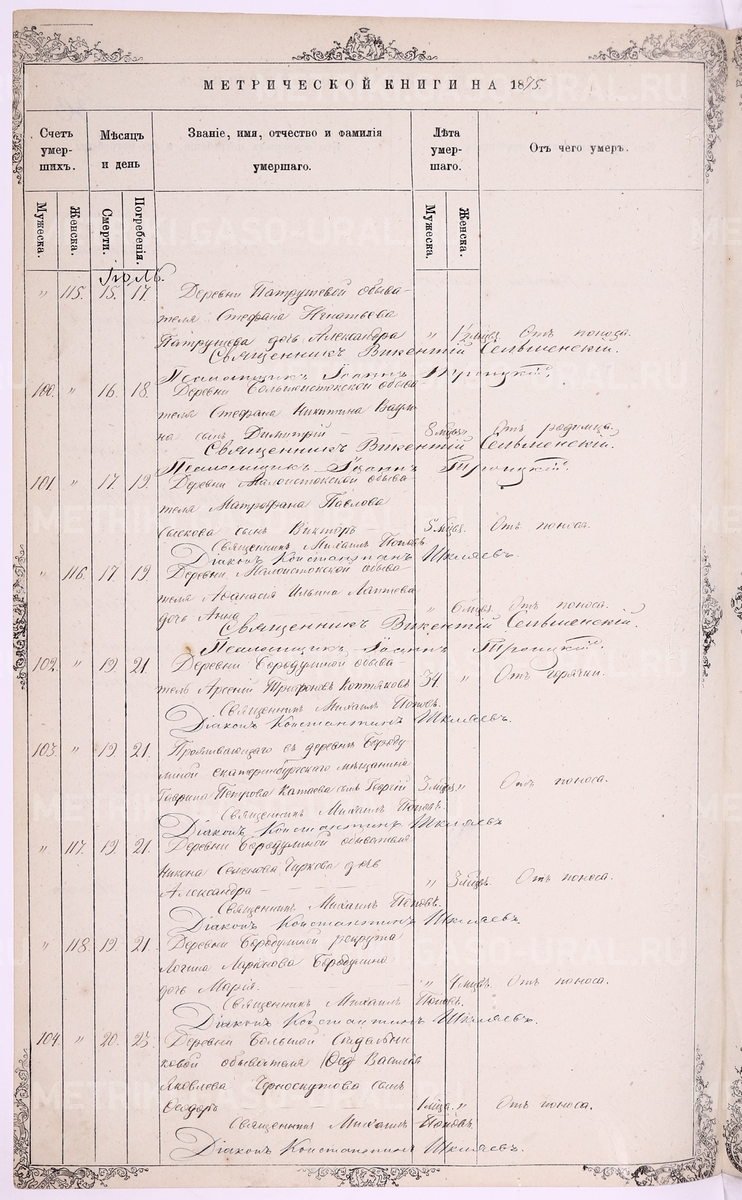 МЕТРИЧЕСКОЙ КНИГИ НА 1895
Счетъ умер-шихъ. Мѣсяцъ и день Званіе, имя, отчество и фамилія умершаго. Лѣта умер-шаго. Отъ чего умеръ.
Мужеска. Женска. Смерти. Погребенія. Мужеска. Женска.
Іюль.
" 115. 15. 17. Деревни Патрушевой обыва-
теля Стефана Игнатьева
Патрушева дочь Александра " 1½ мѣсц. Отъ поноса.
Священникъ Викентій Сельменскій.
Псаломщикъ Іоаннъ Троицкій.
100. " 16. 18. Деревни Большеистокской обыва
теля Стефана Никитина
на сынъ Димитрій 8 мѣсц. " Отъ родимца.
Священникъ Викентій Сельменскій.
Псаломщикъ Іоаннъ Троицкій.
101. " 17. 19. Деревни Малоистокской обыва
теля Митрофана Павлова
сынъ Викторъ 5 мѣсц. Отъ поноса.
Священникъ Михаилъ Поповъ.
Діаконъ Константинъ Шкляевъ.
" 116. 17. 19 Деревни Малоистокской обыва
теля Афанасія Ильина Лаптева
дочь Анна " 6 мѣсц. Отъ поноса.
Священникъ Викентій Сельменскій.
Псаломщикъ Іоаннъ Троицкій.
102. " 19 21. Деревни Бородулиной обыва-
тель Арсеній Трифоновъ Коптяковъ 34. " Отъ горячки.
Священникъ Михаилъ Поповъ.
Діаконъ Константинъ Шкляевъ.
103. " 19 21. Проживающаго въ деревнѣ Бороду
линой екатеринбургскаго мѣщанина
Гавріила Петрова Катаева сынъ Георгій 3 мѣсц. " Отъ поноса.
Священникъ Михаилъ Поповъ.
Діаконъ Константинъ Шкляевъ
" 117. 19 21. Деревни Бородулиной обывателя
Никона Семенова Чиркова дочь
Александра " 3 мѣсц. Отъ поноса.
Священникъ Михаилъ Поповъ.
Діаконъ Константинъ Шкляевъ
" 118. 19. 21. Деревни Бородулиной рекрута
Логина Маркова Бородулина
дочь Марія. " 4 мѣсц. Отъ поноса.
Священникъ Михаилъ Поповъ.
Діаконъ Константинъ Шкляевъ.
104. " 20. 23. Деревни Большой Сидельни
ковой обывателя Василія
Яковлева Черноскутова сынъ
Ѳеодоръ 1 мѣсца. " Отъ поноса.
Священникъ Михаилъ Поповъ.
Діаконъ Константинъ Шкляевъ.